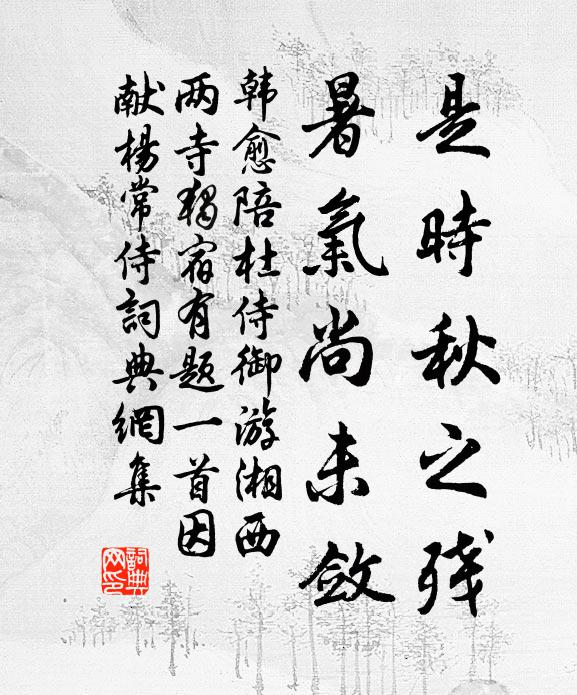 是時秋之残
暑氣尚未斂
韩愈陪杜侍御游湘西
两寺独宿有题一首因
献楊常侍詞典網集
詞典
网印